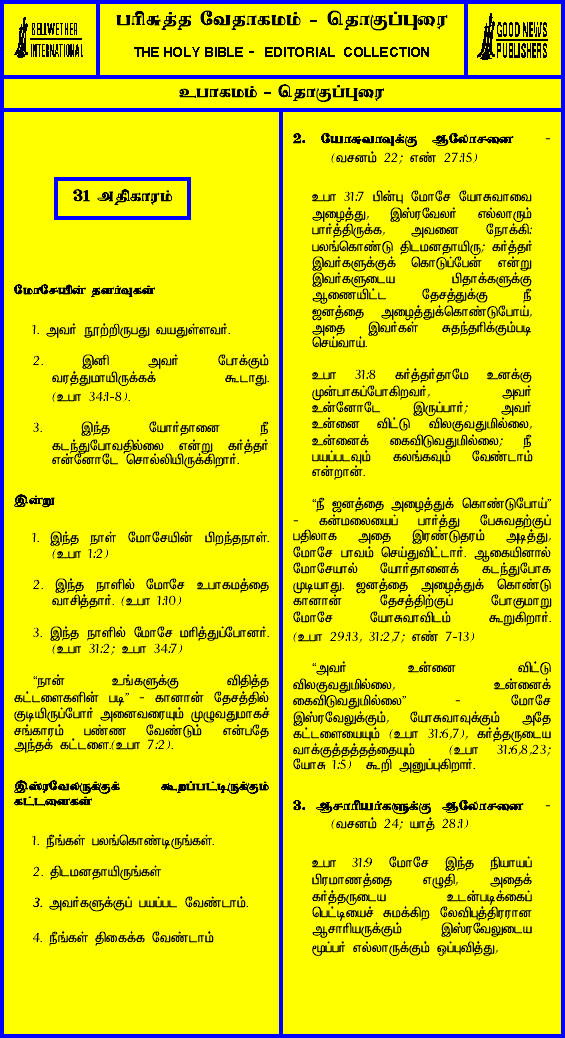 BELLWETHER
INTERNATIONAL
பரிசுத்த வேதாகமம் - தொகுப்புரை
THE HOLY BIBLE - EDITORIAL COLLECTION
GOOD NEWS
PUBLISHERS
உபாகமம் - தொகுப்புரை
31 அதிகாரம்
மோசேயின் தளர்வுகள்
1. அவர் நூற்றிருபது வயதுள்ளவர்.
2. இனி அவர் போக்கும்
வரத்துமாயிருக்கக் கூடாது.
(உபா 34:1-8).
3. இந்த யோர்தானை நீ
கடந்துபோவதில்லை என்று கர்த்தர்
என்னோடே சொல்லியிருக்கிறார்.
இன்று
1. இந்த நாள் மோசேயின் பிறந்தநாள்.
(உபா 1:2)
2. இந்த நாளில் மோசே உபாகமத்தை
வாசித்தார். (உபா 1:10)
3. இந்த நாளில் மோசே மரித்துப்போனார்.
(உபா 31:2; உபா 34:7)
“நான் உங்களுக்கு விதித்த
கட்டளைகளின் படி” - கானான் தேசத்தில்
குடியிருப்போர் அனைவரையும் முழுவதுமாகச்
சங்காரம் பண்ண வேண்டும் என்பதே
அந்தக் கட்டளை.(உபா 7:2).
இஸ்ரவேலருக்குக் கூறப்பட்டிருக்கும்
கட்டளைகள்
1. நீங்கள் பலங்கொண்டிருங்கள்.
2. திடமனதாயிருங்கள்
3. அவர்களுக்குப் பயப்பட வேண்டாம்.
4. நீங்கள் திகைக்க வேண்டாம்
2. யோசுவாவுக்கு ஆலோசனை -
(வசனம் 22; எண் 27:15)
உபா 31:7 பின்பு மோசே யோசுவாவை
அழைத்து, இஸ்ரவேலர் எல்லாரும்
பார்த்திருக்க, அவனை நோக்கி:
பலங்கொண்டு திடமனதாயிரு; கர்த்தர்
இவர்களுக்குக் கொடுப்பேன் என்று
இவர்களுடைய பிதாக்களுக்கு
ஆணையிட்ட தேசத்துக்கு நீ
ஜனத்தை அழைத்துக்கொண்டுபோய்,
அதை இவர்கள் சுதந்தரிக்கும்படி
செய்வாய்.
உபா 31:8 கர்த்தர்தாமே உனக்கு
முன்பாகப்போகிறவர், அவர்
உன்னோடே இருப்பார்; அவர்
உன்னை விட்டு விலகுவதுமில்லை,
உன்னைக் கைவிடுவதுமில்லை; நீ
பயப்படவும் கலங்கவும் வேண்டாம்
என்றான்.
“நீ ஜனத்தை அழைத்துக் கொண்டுபோய்”
- கன்மலையைப் பார்த்து பேசுவதற்குப்
பதிலாக அதை இரண்டுதரம் அடித்து,
மோசே பாவம் செய்துவிட்டார். ஆகையினால்
மோசேயால் யோர்தானைக் கடந்துபோக
முடியாது. ஜனத்தை அழைத்துக் கொண்டு
கானான் தேசத்திற்குப் போகுமாறு
மோசே யோசுவாவிடம் கூறுகிறார்.
(உபா 29:13, 31:2,7; எண் 7-13)
“அவர் உன்னை விட்டு
விலகுவதுமில்லை, உன்னைக்
கைவிடுவதுமில்லை” - மோசே
இஸ்ரவேலுக்கும், யோசுவாவுக்கும் அதே
கட்டளையையும் (உபா 31:6,7), கர்த்தருடைய
வாக்குத்தத்தத்தையும் (உபா 31:6,8,23;
யோசு 1:5) கூறி அனுப்புகிறார்.
3. ஆசாரியர்களுக்கு ஆலோசனை -
(வசனம் 24; யாத் 28:1)
உபா 31:9 மோசே இந்த நியாயப்
பிரமாணத்தை எழுதி, அதைக்
கர்த்தருடைய உடன்படிக்கைப்
பெட்டியைச் சுமக்கிற லேவிபுத்திரரான
ஆசாரியருக்கும் இஸ்ரவேலுடைய
மூப்பர் எல்லாருக்கும் ஒப்புவித்து,